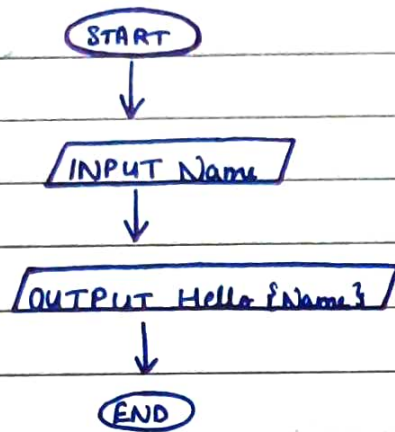 START
INPUT Name
OUTPUT Hello {Name}
END